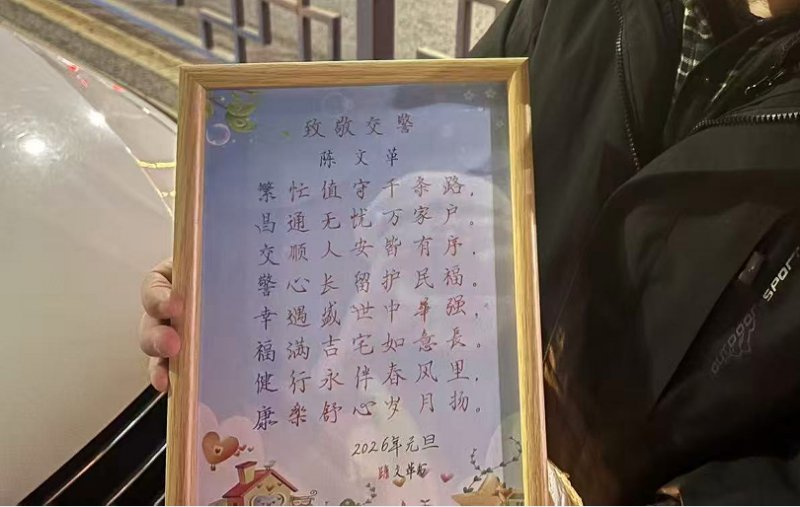 致敬交警
陈文革
繁忙值守千条路，
昌通无忧万家户。
交顺人安皆有序，
警心长留护民福。
幸遇盛世中华强，
福满吉宅如意長。
健行永伴春风里，
康樂舒心岁月扬。
2026年元旦
陈文革
OUTDOOR SPORTS